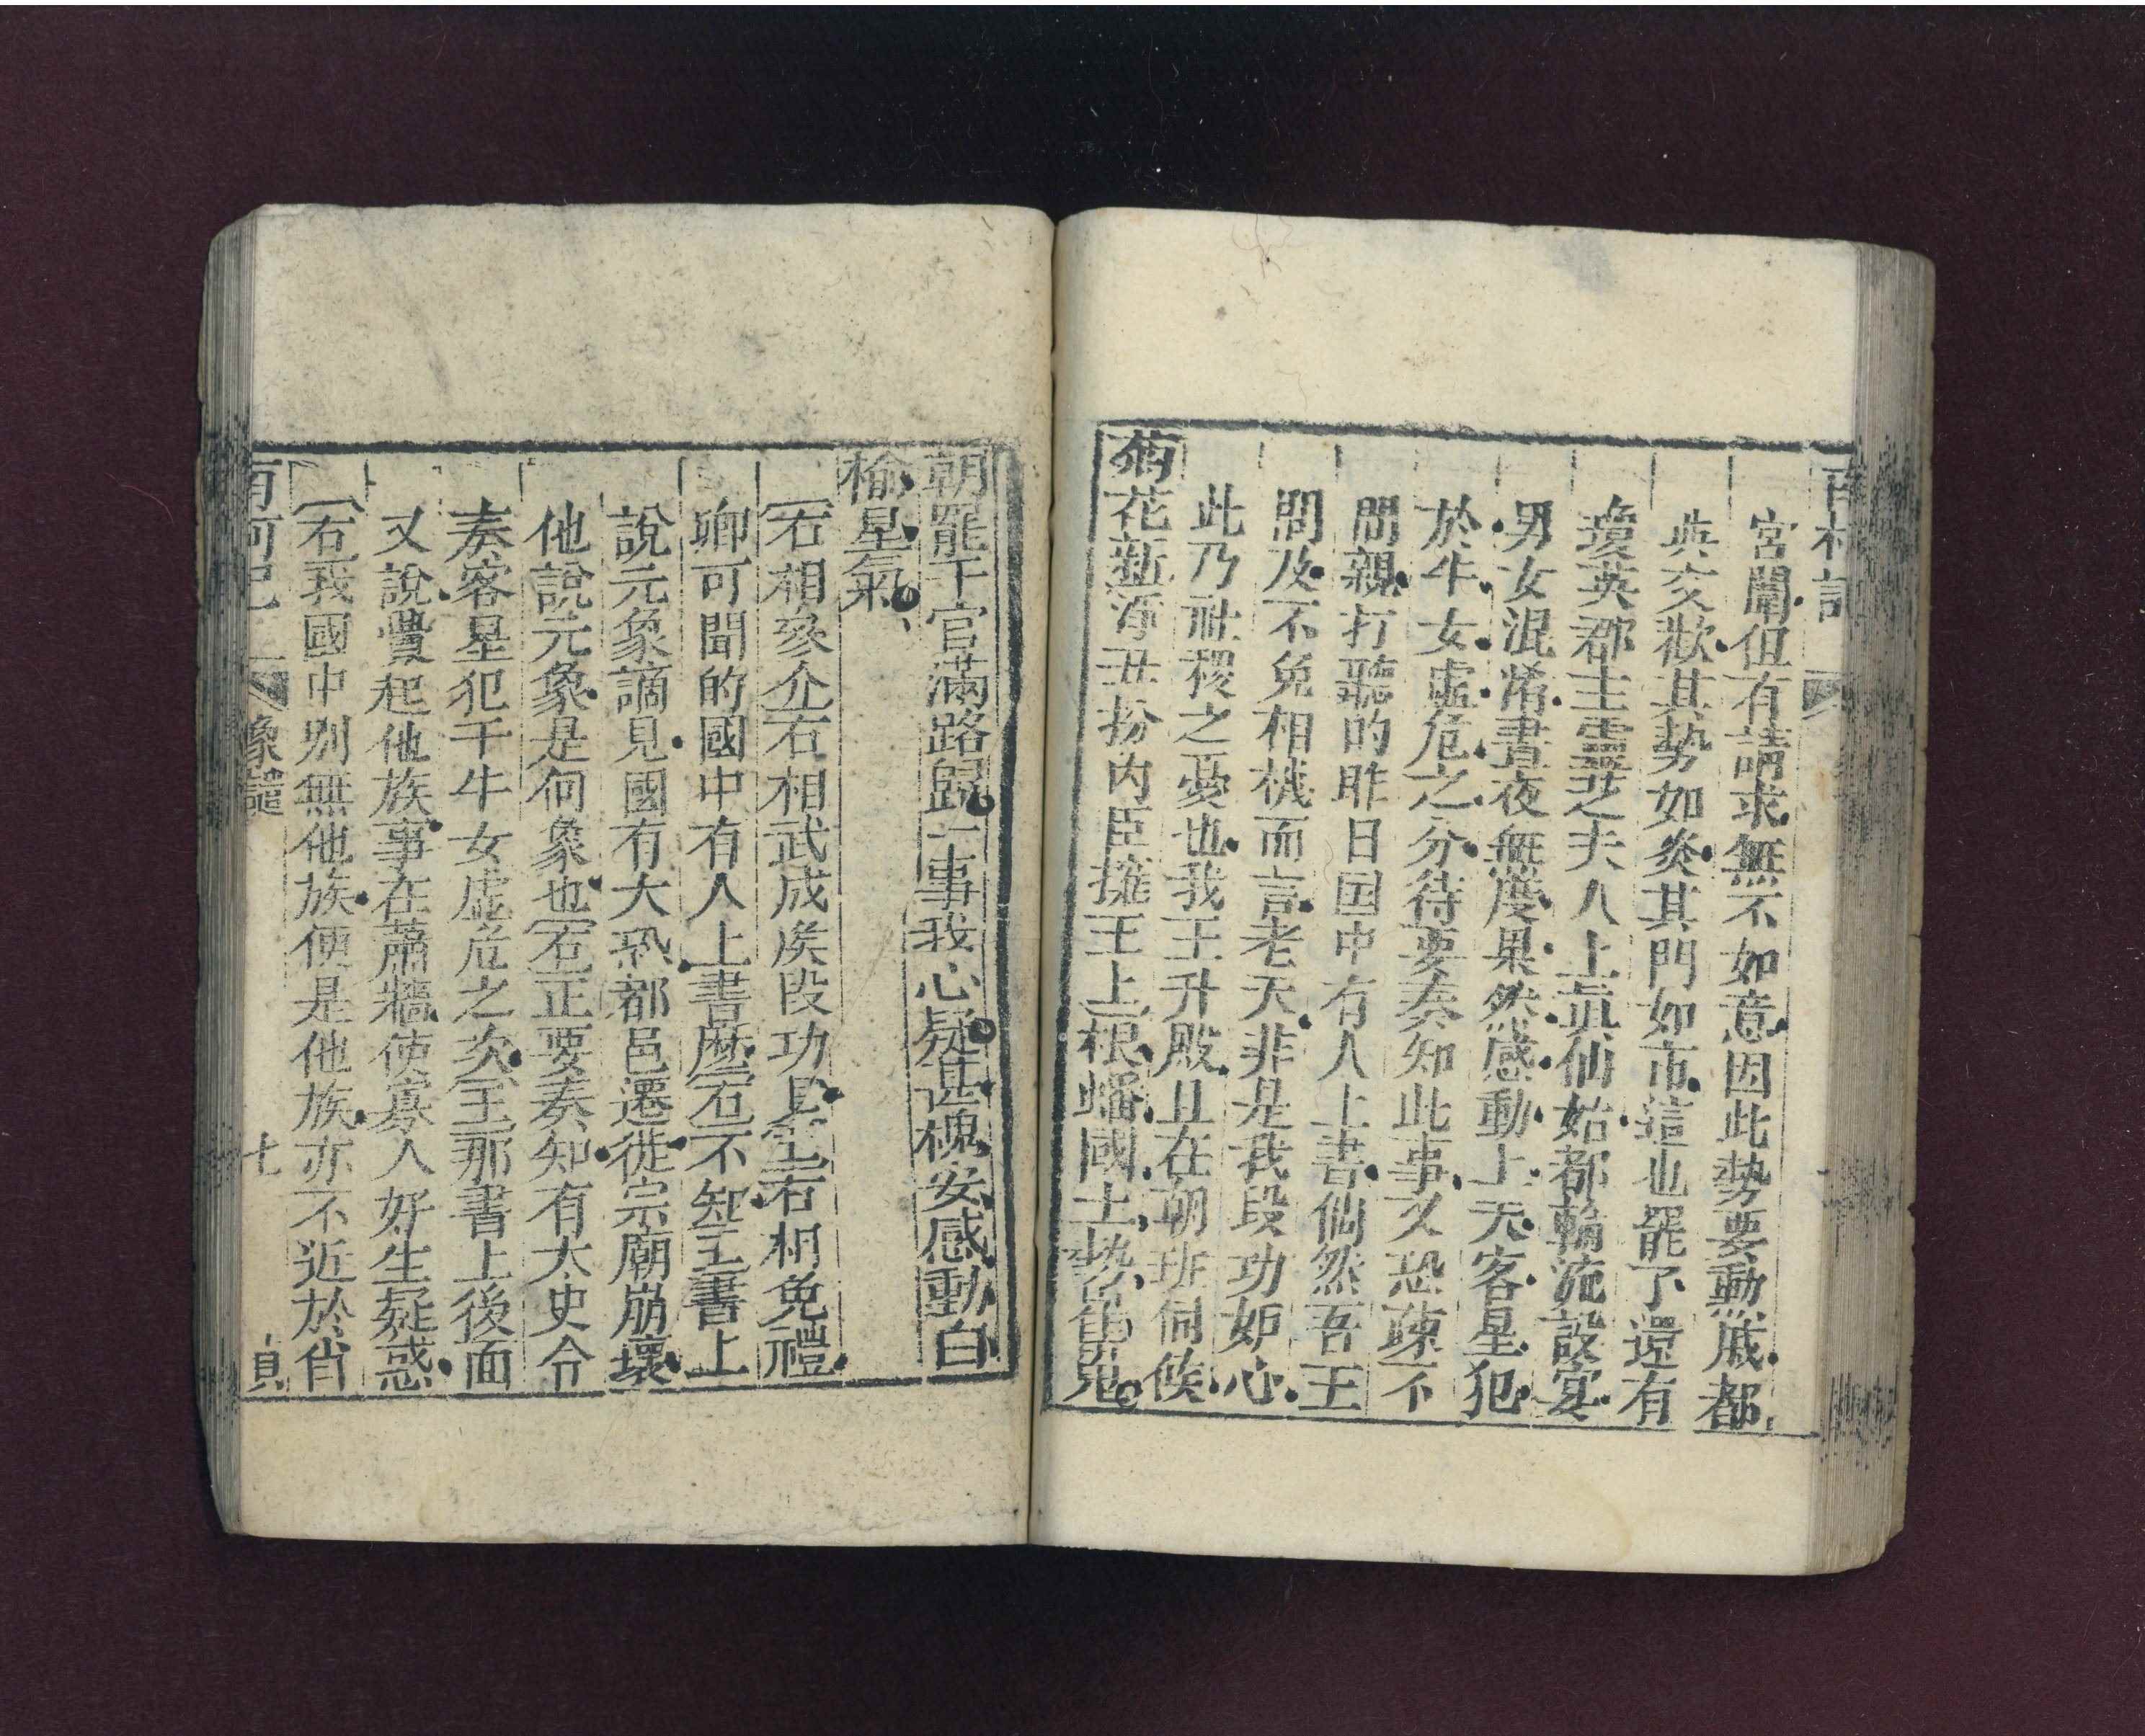 宮闈但有請求無不如意因此勢要動戚都
與交歡其勢如炎其門如市這也罷了還有
瓊英郡主靈芝夫人上真仙姑都輪流設宴
男女混淆晝夜無度果然感動上天客星犯
於牛女虛危之分待要奏知此事又恐疎不
間親打聽的昨日国中有人上書倘然吾王
問及不免相機而言老天非是我段功妒心
此乃社稷之憂也我王升殿且在朝班伺候
菊花新淨丑扮內臣擁王上根蟠國土勢崔嵬
朝罷千官滿路歸一事我心疑甚槐安感動白
榆星氣
右相叅介右相武成侯段功見王右相免禮
卿可聞的國中有人上書麽右不知王書上
說元象謫見國有大恐都邑遷徙宗廟崩壞
他說元象是何象也右正要奏知有太史令
奏客星犯于牛女虛危之次王那書上後面
又說釁起他族事在蕭牆使寡人好生疑惑
右我國中別無他族便是他族亦不近於肖
南柯記 象譴 七 貞